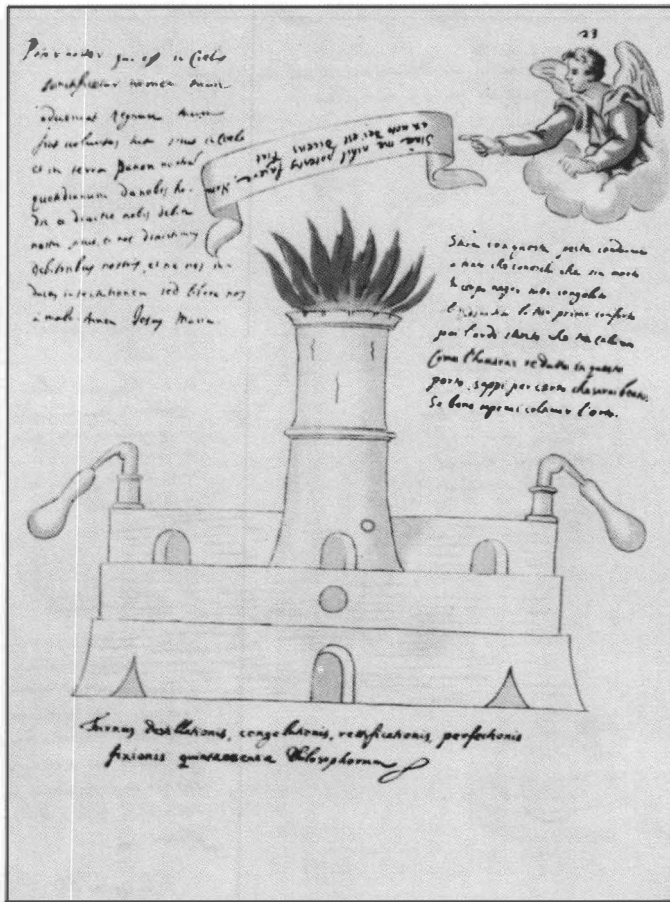 23
Pater noster qui es in Cielo
sanctificetur nomen tuum
adveniat regnum tuum
fiat voluntas tua sicut in Celo
et in terra Panem nostrū
quotidianum da nobis ho-
die et dimitte nobis debita
nostra, sicut et nos dimittimus
debitoribus nostris, et ne nos in-
ducas in tentationem sed libera nos
a malo. Amen Jesus Maria.
Sine me nihil potestis facere. Nam
ex ore Dei est dicens Fiat
che conoschi che sia morto
corpo negro
primo conforto
per
Come l'haverai redutto in questo
porto, sappi per certo che sarai beato,
Se bene l'orto.
Furnus destillationis, congelationis, rettificationis, perfectionis
fixionis quintaessentia Philosophorum